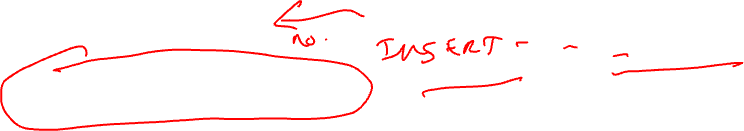 no.
INSERT - - -